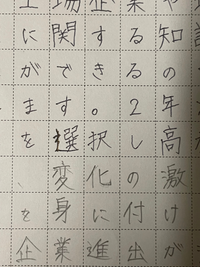 場企業や
に関する知
ができるの
ます。2年
を選択し高
、変化の激
を身に付け
企業進出が